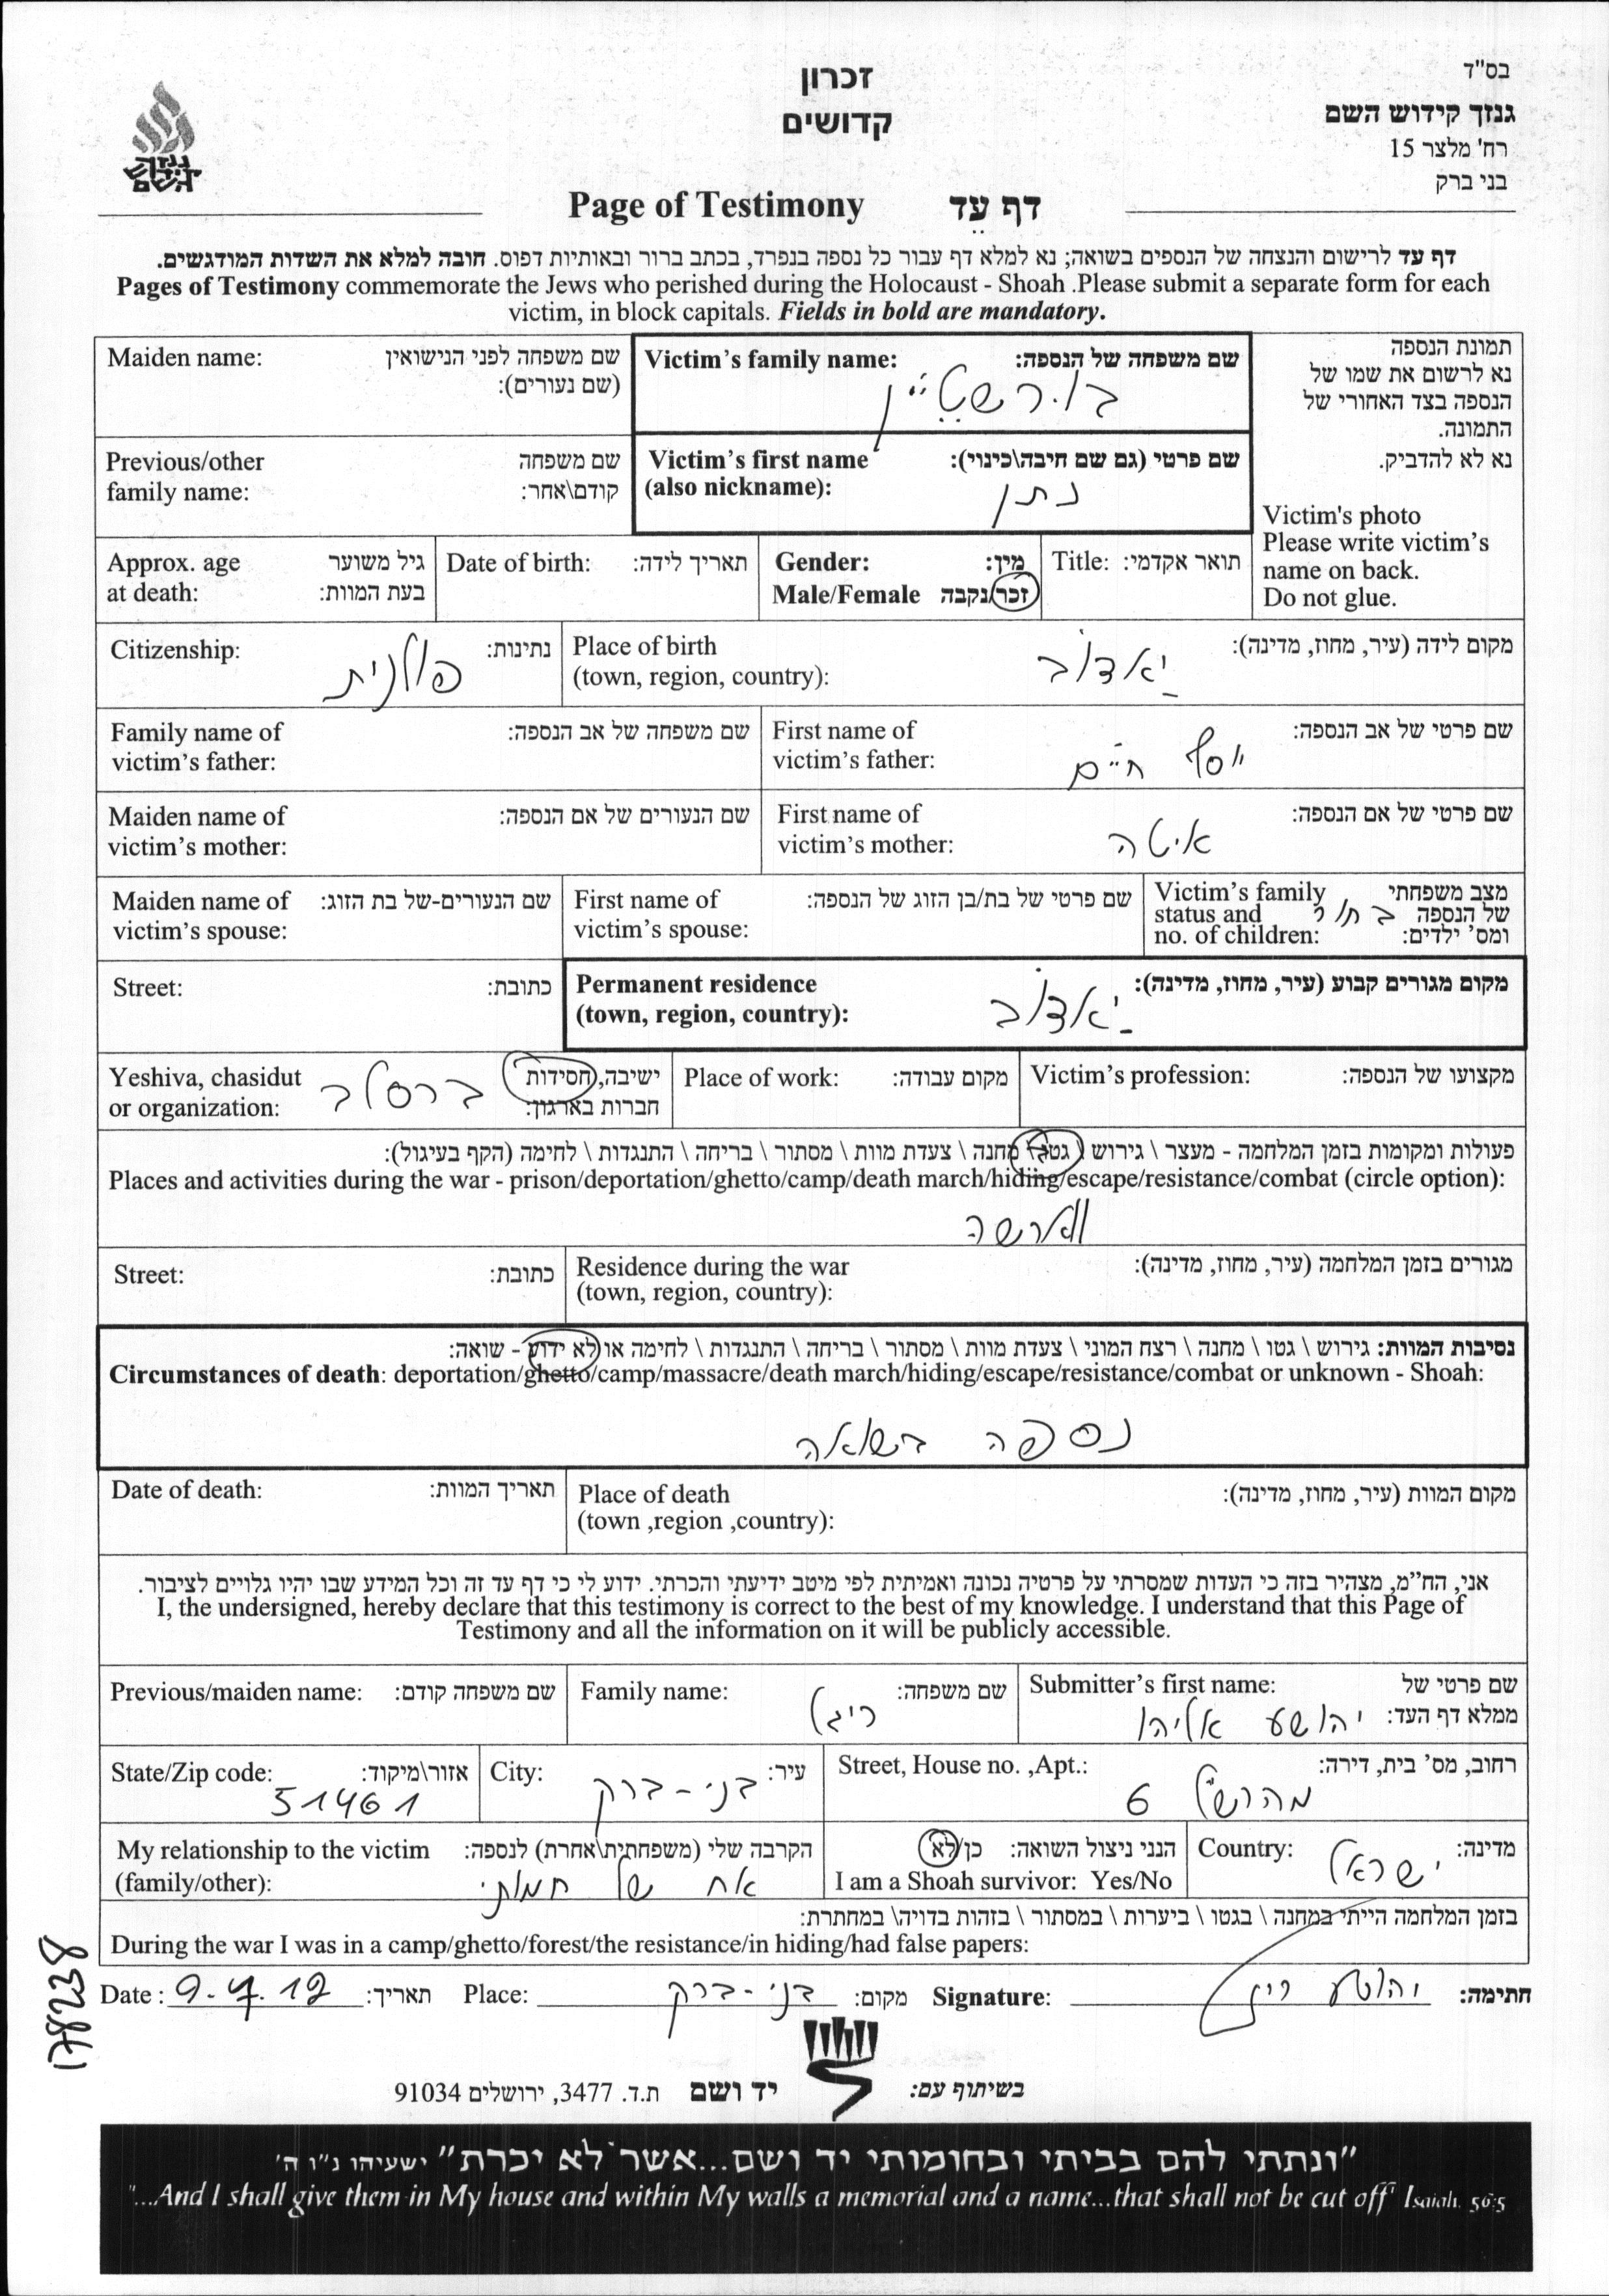 בס"ד
גנזך קידוש השם
רח' מלצר 15
בני ברק
זכרון
קדושים
גנזך
קידוש
השם
Page of Testimony דף עֵד
דף עד לרישום והנצחה של הנספים בשואה; נא למלא דף עבור כל נספה בנפרד, בכתב ברור ובאותיות דפוס. חובה למלא את השדות המודגשים.
Pages of Testimony commemorate the Jews who perished during the Holocaust - Shoah .Please submit a separate form for each
victim, in block capitals. Fields in bold are mandatory.
תמונת הנספה
נא לרשום את שמו של
הנספה בצד האחורי של
התמונה.
נא לא להדביק.
Victim's photo
Please write victim's
name on back.
Do not glue.
Victim's family name: שם משפחה של הנספה:
בורשטיין
Maiden name: שם משפחה לפני הנישואין
(שם נעורים):
Victim's first name שם פרטי (גם שם חיבה\כינוי):
(also nickname):
נתן
Previous/other שם משפחה
family name: קודם\אחר:
Title: תואר אקדמי:
Gender: מין:
Male/Female זכר/נקבה
Date of birth: תאריך לידה:
Approx. age גיל משוער
at death: בעת המוות:
Place of birth מקום לידה (עיר, מחוז, מדינה):
(town, region, country):
יאדוב
Citizenship: נתינות:
פולנית
First name of שם פרטי של אב הנספה:
victim's father:
יוסף חיים
Family name of שם משפחה של אב הנספה:
victim's father:
First name of שם פרטי של אם הנספה:
victim's mother:
איטה
Maiden name of שם הנעורים של אם הנספה:
victim's mother:
Victim's family מצב משפחתי
status and של הנספה
no. of children: ומס' ילדים:
בחור
First name of שם פרטי של בת/בן הזוג של הנספה:
victim's spouse:
Maiden name of שם הנעורים-של בת הזוג:
victim's spouse:
Permanent residence מקום מגורים קבוע (עיר, מחוז, מדינה):
(town, region, country):
יאדוב
Street: כתובת:
Victim's profession: מקצועו של הנספה:
Place of work: מקום עבודה:
Yeshiva, chasidut ישיבה, חסידות
or organization: חברות בארגון:
ברסלב
פעולות ומקומות בזמן המלחמה - מעצר \ גירוש \ גטו \ מחנה \ צעדת מוות \ מסתור \ בריחה \ התנגדות \ לחימה (הקף בעיגול):
Places and activities during the war - prison/deportation/ghetto/camp/death march/hiding/escape/resistance/combat (circle option):
ווארשה
Residence during the war מגורים בזמן המלחמה (עיר, מחוז, מדינה):
(town, region, country):
Street: כתובת:
נסיבות המוות: גירוש \ גטו \ מחנה \ רצח המוני \ צעדת מוות \ מסתור \ בריחה \ התנגדות \ לחימה או לא ידוע - שואה:
Circumstances of death: deportation/ghetto/camp/massacre/death march/hiding/escape/resistance/combat or unknown - Shoah:
נספה בשואה
Place of death מקום המוות (עיר, מחוז, מדינה):
(town ,region ,country):
Date of death: תאריך המוות:
אני, הח"מ, מצהיר בזה כי העדות שמסרתי על פרטיה נכונה ואמיתית לפי מיטב ידיעתי והכרתי. ידוע לי כי דף עד זה וכל המידע שבו יהיו גלויים לציבור.
I, the undersigned, hereby declare that this testimony is correct to the best of my knowledge. I understand that this Page of
Testimony and all the information on it will be publicly accessible.
Submitter's first name: שם פרטי של
ממלא דף העד:
יהושע אליהו
Family name: שם משפחה:
ריגל
Previous/maiden name: שם משפחה קודם:
Street, House no. ,Apt.: רחוב, מס' בית, דירה:
מהרש"ל 6
City: עיר:
בני-ברק
State/Zip code: אזור\מיקוד:
51461
Country: מדינה:
ישראל
הנני ניצול השואה: כן/לא
I am a Shoah survivor: Yes/No
My relationship to the victim הקרבה שלי (משפחתית\אחרת) לנספה:
(family/other):
אח של חמותי
בזמן המלחמה הייתי במחנה \ בגטו \ ביערות \ במסתור \ בזהות בדויה\ במחתרת:
During the war I was in a camp/ghetto/forest/the resistance/in hiding/had false papers:
Date : 9.4.12 תאריך: Place: בני-ברק מקום: Signature: יהושע ריגל חתימה:
178238
בשיתוף עם: יד ושם ת.ד. 3477, ירושלים 91034
"ונתתי להם בביתי ובחומותי יד ושם...אשר לא יכרת" ישעיהו נ"ו ה'
"...And I shall give them in My house and within My walls a memorial and a name...that shall not be cut off" Isaiah. 56:5